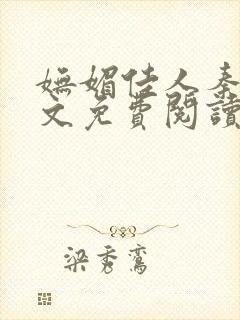 嫵媚佳人秦
文免費閱讀
梁秀鸞